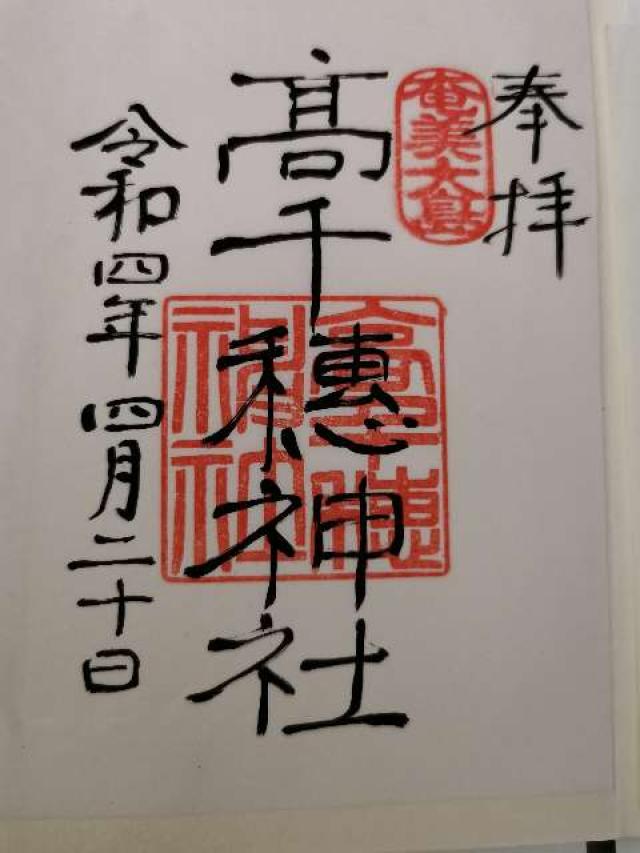 奉拝
奄美大島
髙千穂神社
高千穂神社
令和四年四月二十日